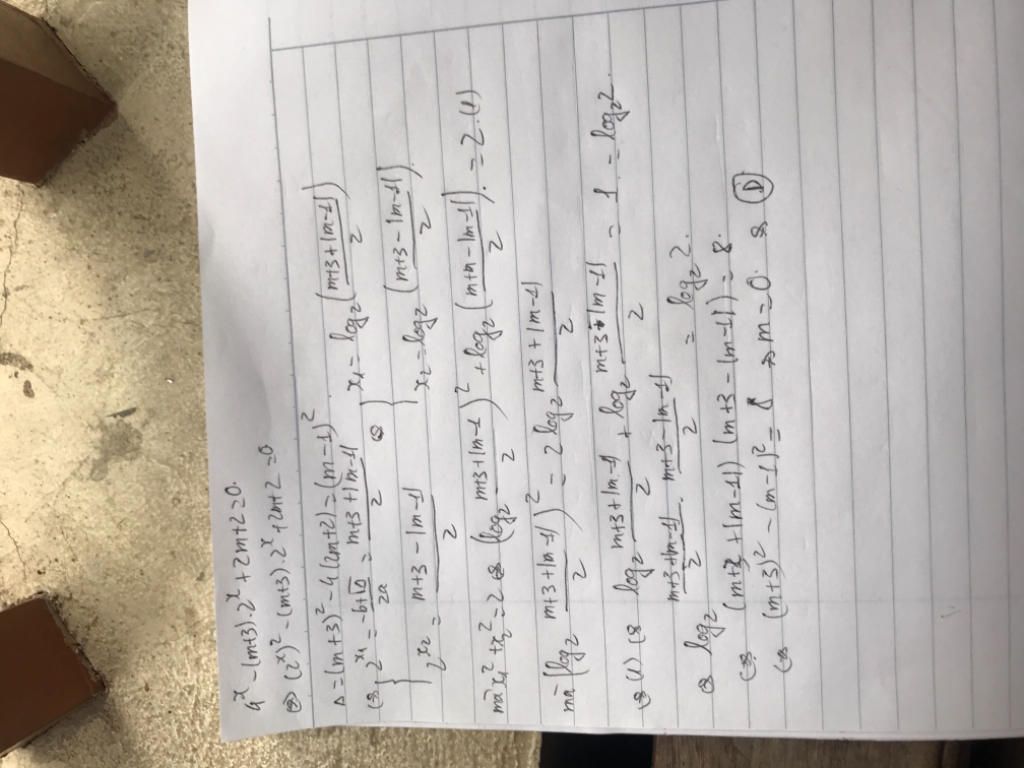 4^x - (m+3).2^x + 2m+2=0.
⇔ (2^x)^2 - (m+3).2^x + 2m+2=0
Δ = (m+3)^2 - 4(2m+2) = (m-1)^2
⇔ { 2^{x_1} = \frac{-b+\sqrt{Δ}}{2a} = \frac{m+3+|m-1|}{2} ⇔ { x_1 = log_2 (\frac{m+3+|m-1|}{2})
2^{x_2} = \frac{m+3-|m-1|}{2} x_2 = log_2 (\frac{m+3-|m-1|}{2}).
mà x_1^2 + x_2^2 = 2 ⇔ (log_2 \frac{m+3+|m-1}{2})^2 + log_2 (\frac{m+m-|m-1|}{2}). = 2.(1)
mà (log_2 \frac{m+3+|m-1|}{2})^2 = 2 log_2 \frac{m+3+|m-1|}{2}
⇔ (1) ⇔ log_2 \frac{m+3+|m-1|}{2} + log_2 \frac{m+3+|m-1|}{2} = 1 = log_2 2.
⇔ log_2 \frac{m+3+|m-1|}{2} . \frac{m+3-|m-1|}{2} = log_2 2.
⇔ (m+3+|m-1|) (m+3-|m-1|) = 8.
⇔ (m+3)^2 - (m-1)^2 = 8 ⇒ m=0. ⇒ D